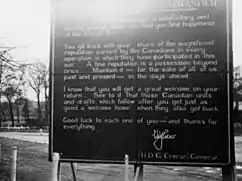 and you find happiness
You go back with your share of the magnificent
reputation earned by the Canadians in every
operation in which they have participated in this
war. A fine reputation is a possession beyond
price. Maintain it — for the sake of all of us
past and present — in the days ahead.
I know that you will get a great welcome on your
return. See to it that those Canadian units
and drafts, which follow after you get just as
good a welcome home when they also get back.
Good luck to each one of you — and thanks for
everything.
H.D.G. Crerar General